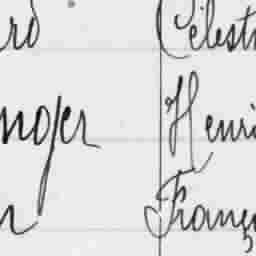 rd Célest
nger Henri
n Franç